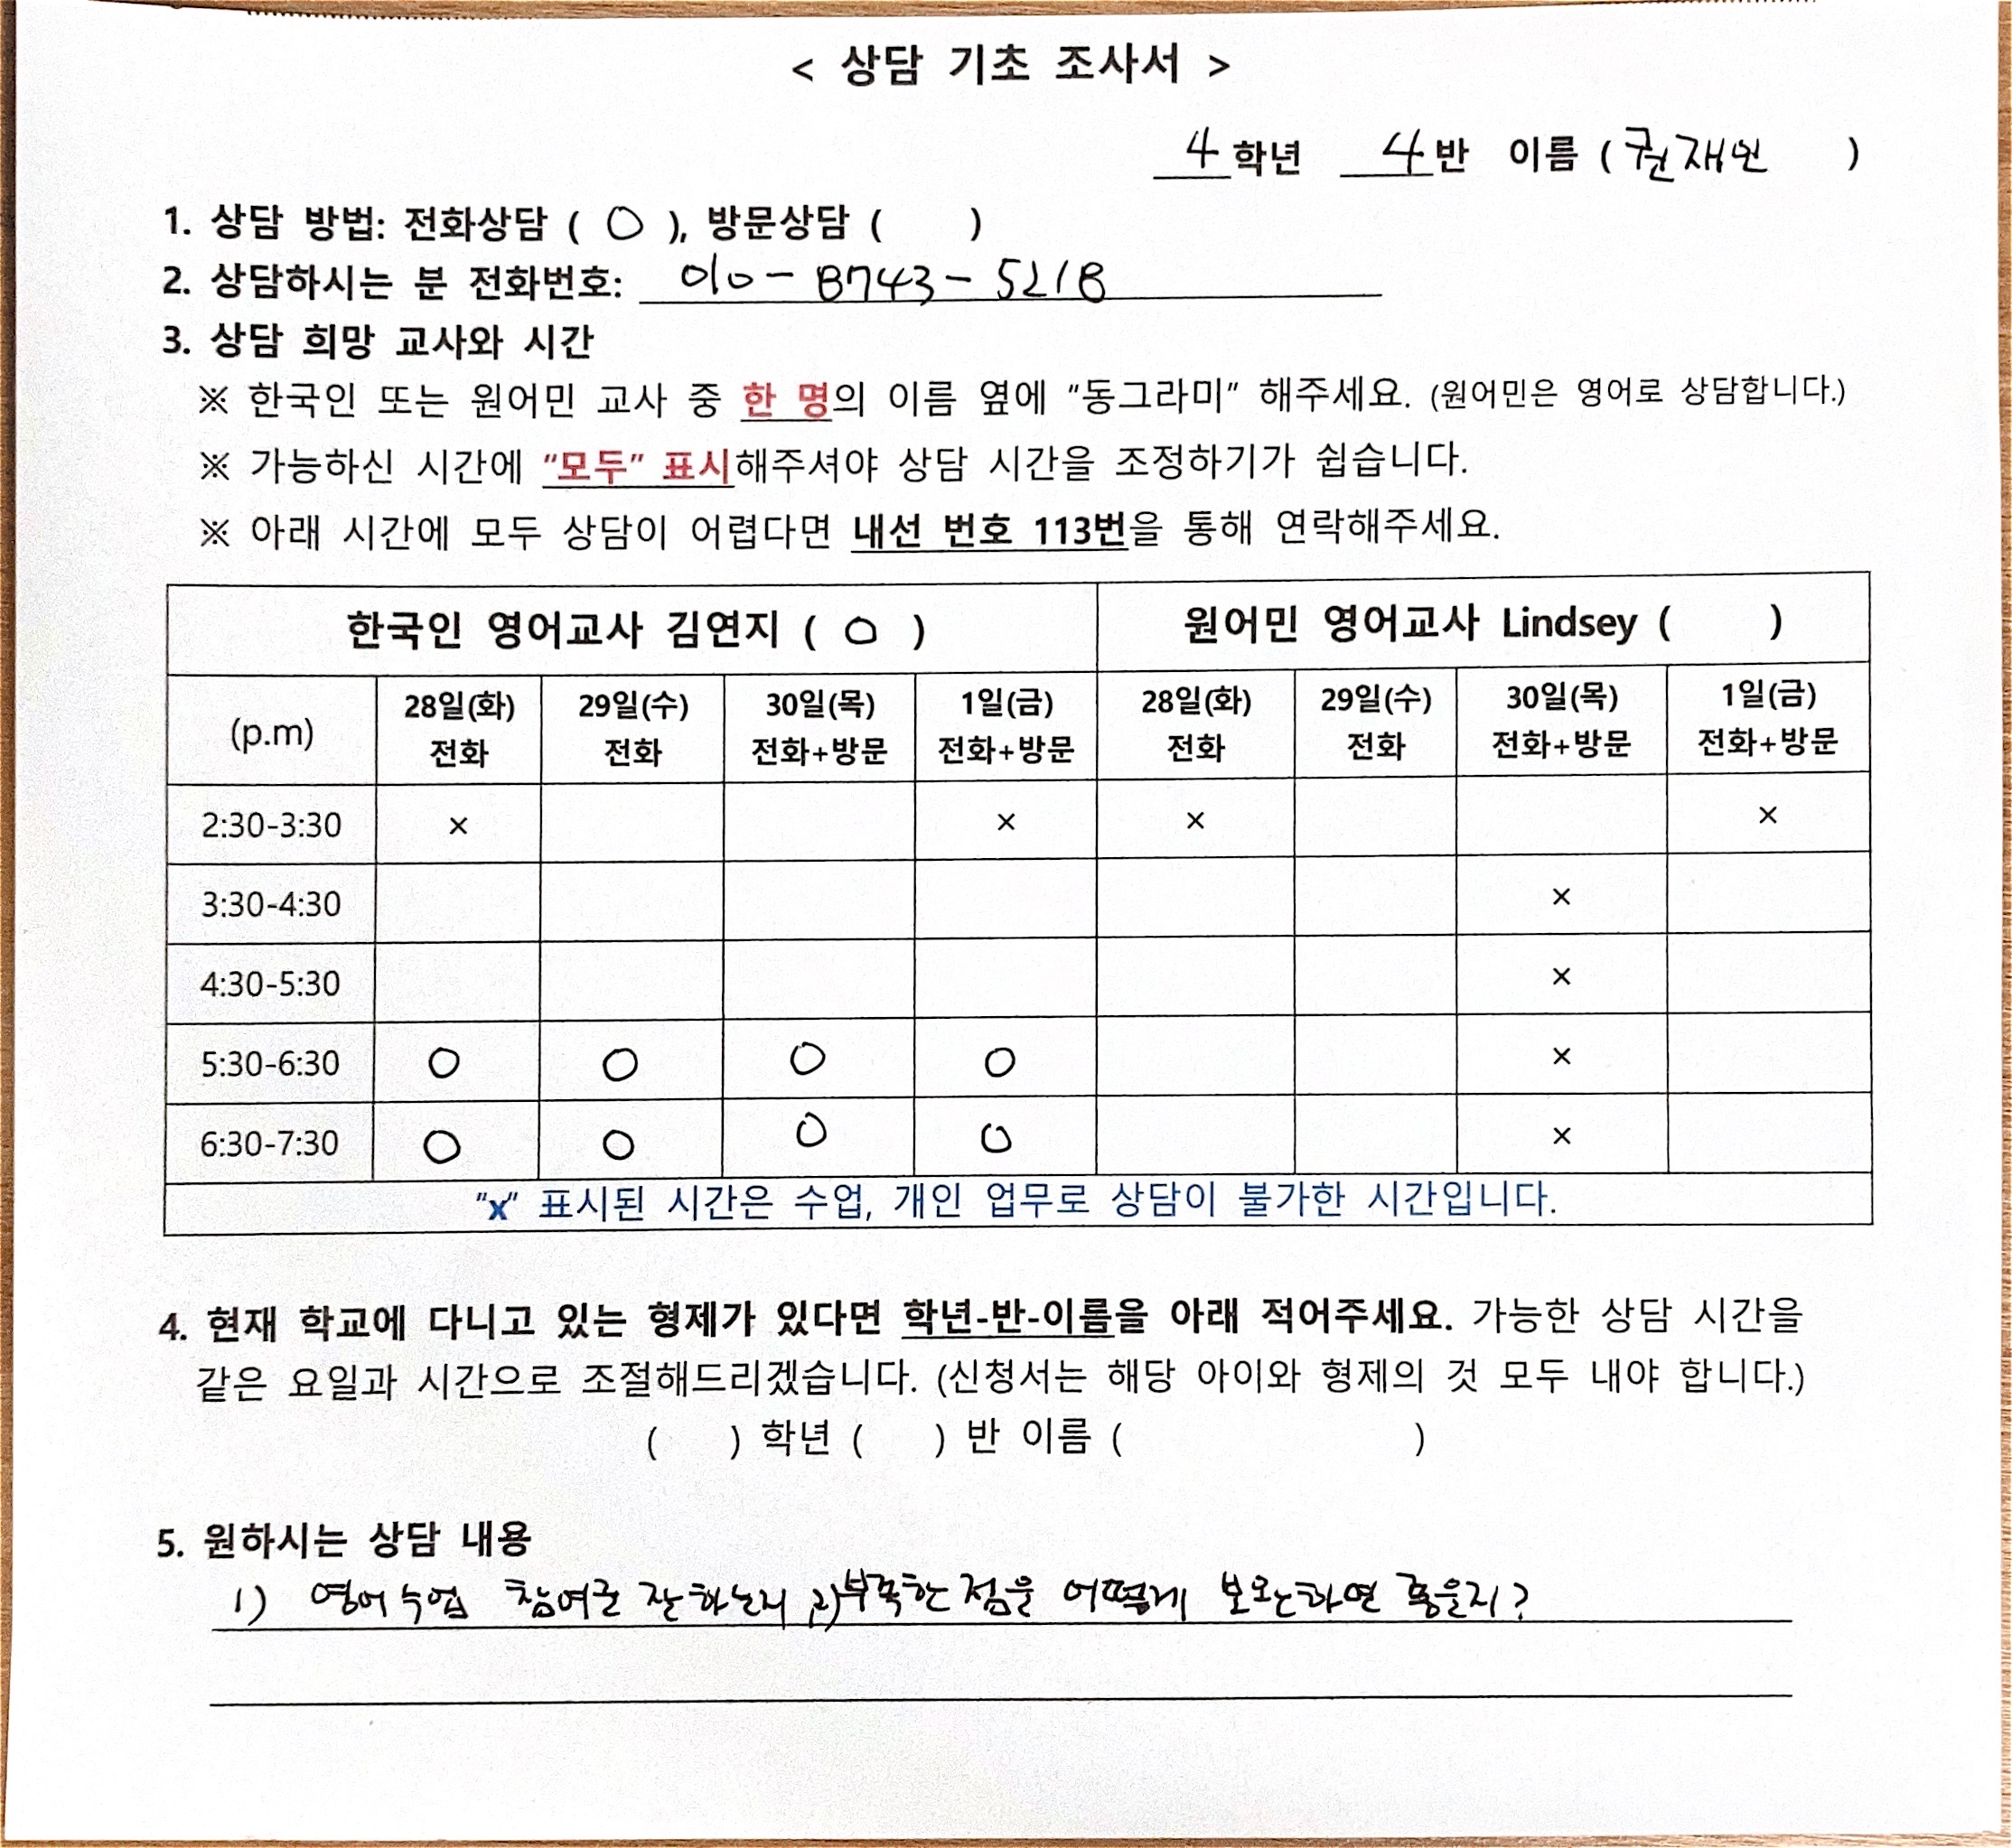 < 상담 기초 조사서 >
4학년 4반 이름 ( 권재인 )
1. 상담 방법: 전화상담 ( O ), 방문상담 ( )
2. 상담하시는 분 전화번호: 010-8743-5218
3. 상담 희망 교사와 시간
※ 한국인 또는 원어민 교사 중 한 명의 이름 옆에 “동그라미” 해주세요. (원어민은 영어로 상담합니다.)
※ 가능하신 시간에 “모두” 표시해주셔야 상담 시간을 조정하기가 쉽습니다.
※ 아래 시간에 모두 상담이 어렵다면 내선 번호 113번을 통해 연락해주세요.
한국인 영어교사 김연지 ( O ) 원어민 영어교사 Lindsey ( )
(p.m) 28일(화) 29일(수) 30일(목) 1일(금) 28일(화) 29일(수) 30일(목) 1일(금)
전화 전화 전화+방문 전화+방문 전화 전화 전화+방문 전화+방문
2:30-3:30 × × × ×
3:30-4:30 ×
4:30-5:30 ×
5:30-6:30 O O O O ×
6:30-7:30 O O O O ×
“x” 표시된 시간은 수업, 개인 업무로 상담이 불가한 시간입니다.
4. 현재 학교에 다니고 있는 형제가 있다면 학년-반-이름을 아래 적어주세요. 가능한 상담 시간을
같은 요일과 시간으로 조절해드리겠습니다. (신청서는 해당 아이와 형제의 것 모두 내야 합니다.)
( ) 학년 ( ) 반 이름 ( )
5. 원하시는 상담 내용
1) 영어수업 참여는 잘하는지, 2) 부족한 점을 어떻게 보완하면 좋을지?